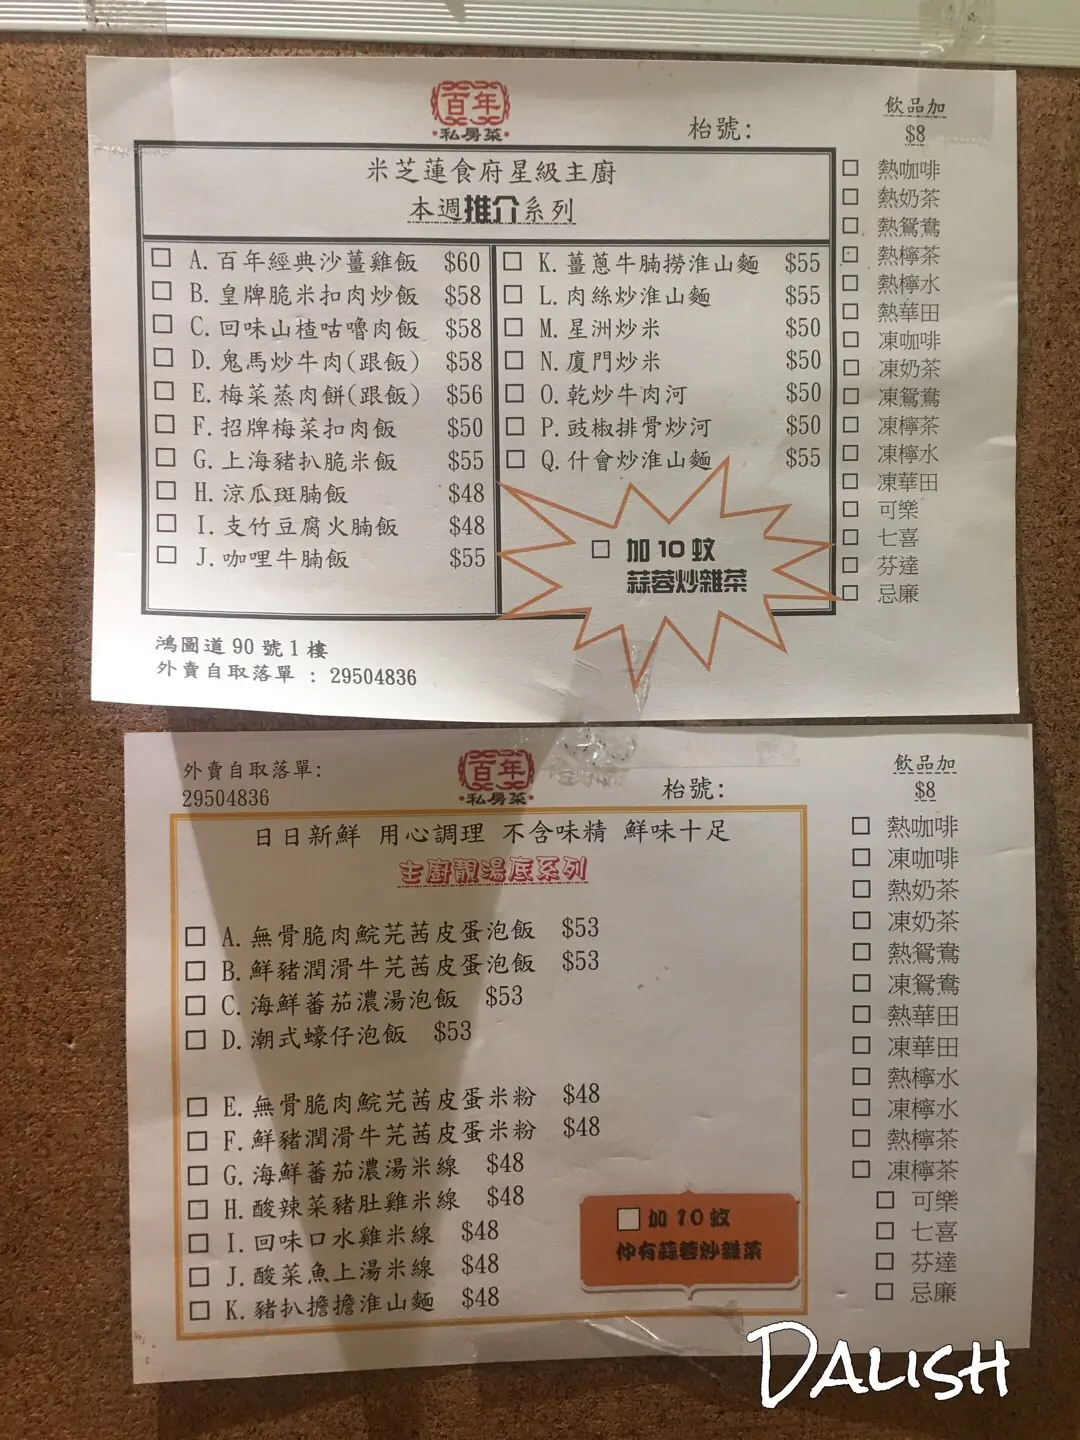 百年
·私房菜·
枱號:
飲品加
$8
米芝蓮食府星級主廚
本週推介系列
□ A.百年經典沙薑雞飯 $60
□ B.皇牌脆米扣肉炒飯 $58
□ C.回味山楂咕嚕肉飯 $58
□ D.鬼馬炒牛肉(跟飯) $58
□ E.梅菜蒸肉餅(跟飯) $56
□ F.招牌梅菜扣肉飯 $50
□ G.上海豬扒脆米飯 $55
□ H.涼瓜斑腩飯 $48
□ I.支竹豆腐火腩飯 $48
□ J.咖哩牛腩飯 $55
□ K.薑蔥牛腩撈淮山麵 $55
□ L.肉絲炒淮山麵 $55
□ M.星洲炒米 $50
□ N.廈門炒米 $50
□ O.乾炒牛肉河 $50
□ P.豉椒排骨炒河 $50
□ Q.什會炒淮山麵 $55
□ 加10蚊
蒜蓉炒雜菜
□ 熱咖啡
□ 熱奶茶
□ 熱鴛鴦
□ 熱檸茶
□ 熱檸水
□ 熱華田
□ 凍咖啡
□ 凍奶茶
□ 凍鴛鴦
□ 凍檸茶
□ 凍檸水
□ 凍華田
□ 可樂
□ 七喜
□ 芬達
□ 忌廉
鴻圖道90號1樓
外賣自取落單 : 29504836
外賣自取落單:
29504836
百年
·私房菜·
枱號:
飲品加
$8
日日新鮮 用心調理 不含味精 鮮味十足
主廚靚湯底系列
□ A.無骨脆肉鯇芫茜皮蛋泡飯 $53
□ B.鮮豬潤滑牛芫茜皮蛋泡飯 $53
□ C.海鮮蕃茄濃湯泡飯 $53
□ D.潮式蠔仔泡飯 $53
□ E.無骨脆肉鯇芫茜皮蛋米粉 $48
□ F.鮮豬潤滑牛芫茜皮蛋米粉 $48
□ G.海鮮蕃茄濃湯米線 $48
□ H.酸辣菜豬肚雞米線 $48
□ I.回味口水雞米線 $48
□ J.酸菜魚上湯米線 $48
□ K.豬扒擔擔淮山麵 $48
□ 加10蚊
仲有蒜蓉炒雜菜
□ 熱咖啡
□ 凍咖啡
□ 熱奶茶
□ 凍奶茶
□ 熱鴛鴦
□ 凍鴛鴦
□ 熱華田
□ 凍華田
□ 熱檸水
□ 凍檸水
□ 熱檸茶
□ 凍檸茶
□ 可樂
□ 七喜
□ 芬達
□ 忌廉
DALISH